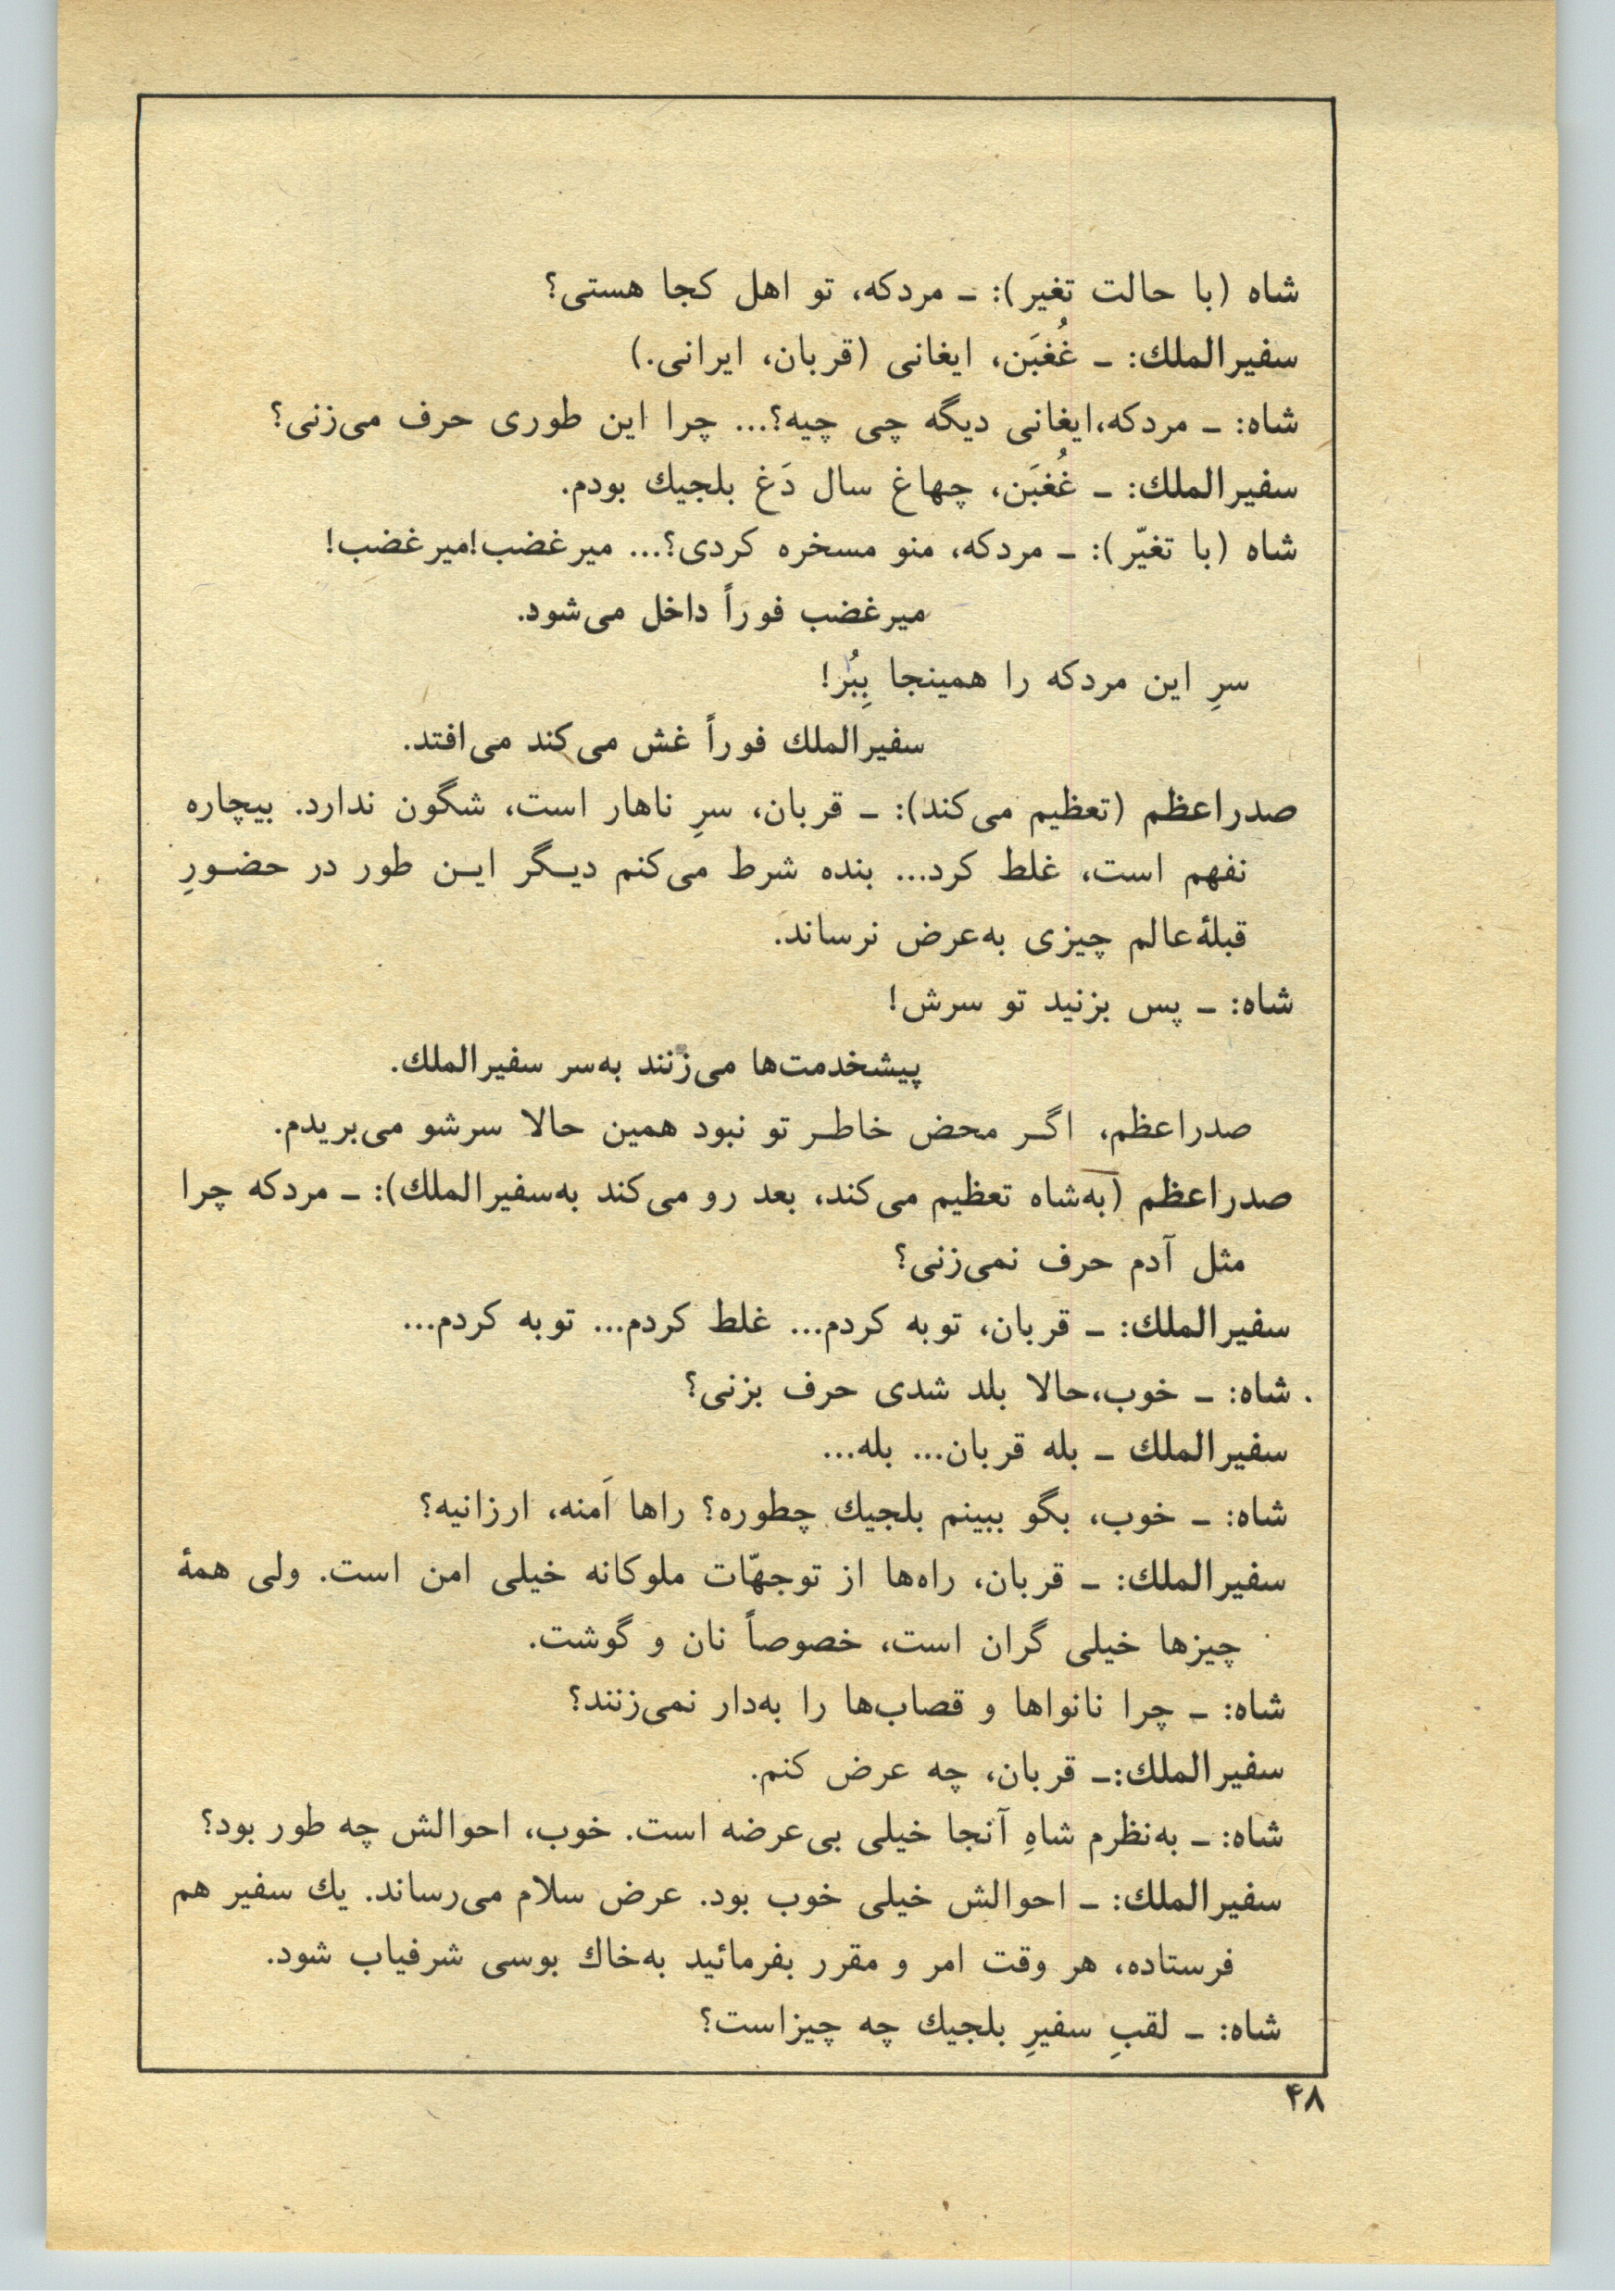 شاه (با حالت تغیر): ـ مردکه، تو اهل کجا هستی؟
سفیرالملك: ـ غُغبَن، ایغانی (قربان، ایرانی.)
شاه: ـ مردکه،ایغانی دیگه چی چیه؟... چرا این طوری حرف می‌زنی؟
سفیرالملك: ـ غُغبَن، چهاغ سال دَغ بلجیك بودم.
شاه (با تغیّر): ـ مردکه، منو مسخره کردی؟... میرغضب!میرغضب!
میرغضب فوراً داخل می‌شود.
سرِ این مردکه را همینجا بِبُر!
سفیرالملك فوراً غش می‌کند می‌افتد.
صدراعظم (تعظیم می‌کند): ـ قربان، سرِ ناهار است، شگون ندارد. بیچاره
نفهم است، غلط کرد... بنده شرط می‌کنم دیـگر ایـن طور در حضـورِ
قبلهٔ‌عالم چیزی به‌عرض نرساند.
شاه: ـ پس بزنید تو سرش!
پیشخدمت‌ها می‌زنند به‌سر سفیرالملك.
صدراعظم، اگـر محض خاطـر تو نبود همین حالا سرشو می‌بریدم.
صدراعظم (به‌شاه تعظیم می‌کند، بعد رو می‌کند به‌سفیرالملك): ـ مردکه چرا
مثل آدم حرف نمی‌زنی؟
سفیرالملك: ـ قربان، توبه کردم... غلط کردم... توبه کردم...
شاه: ـ خوب،حالا بلد شدی حرف بزنی؟
سفیرالملك ـ بله قربان... بله...
شاه: ـ خوب، بگو ببینم بلجیك چطوره؟ راها اَمنه، ارزانیه؟
سفیرالملك: ـ قربان، راه‌ها از توجهّات ملوکانه خیلی امن است. ولی همهٔ
چیزها خیلی گران است، خصوصاً نان و گوشت.
شاه: ـ چرا نانواها و قصاب‌ها را به‌دار نمی‌زنند؟
سفیرالملك:ـ قربان، چه عرض کنم.
شاه: ـ به‌نظرم شاهِ آنجا خیلی بی‌عرضه است. خوب، احوالش چه طور بود؟
سفیرالملك: ـ احوالش خیلی خوب بود. عرض سلام می‌رساند. یك سفیر هم
فرستاده، هر وقت امر و مقرر بفرمائید به‌خاك بوسی شرفیاب شود.
شاه: ـ لقبِ سفیرِ بلجیك چه چیزاست؟
۴۸